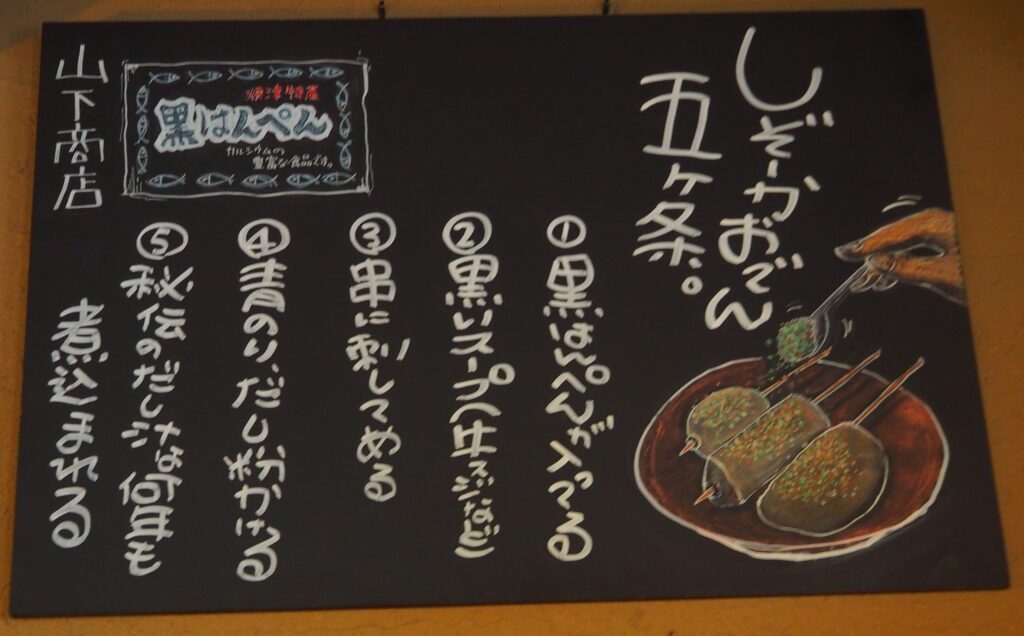 しぞーかおでん
五ヶ条。
①黒はんぺんが入ってる
②黒いスープ(牛スジなど)
③串に刺してある
④青のり、だし粉かける
⑤秘伝のだし汁で何年も
煮込まれる
焼津特産
黒はんぺん
カルシウムの
豊富な食品です。
山下商店